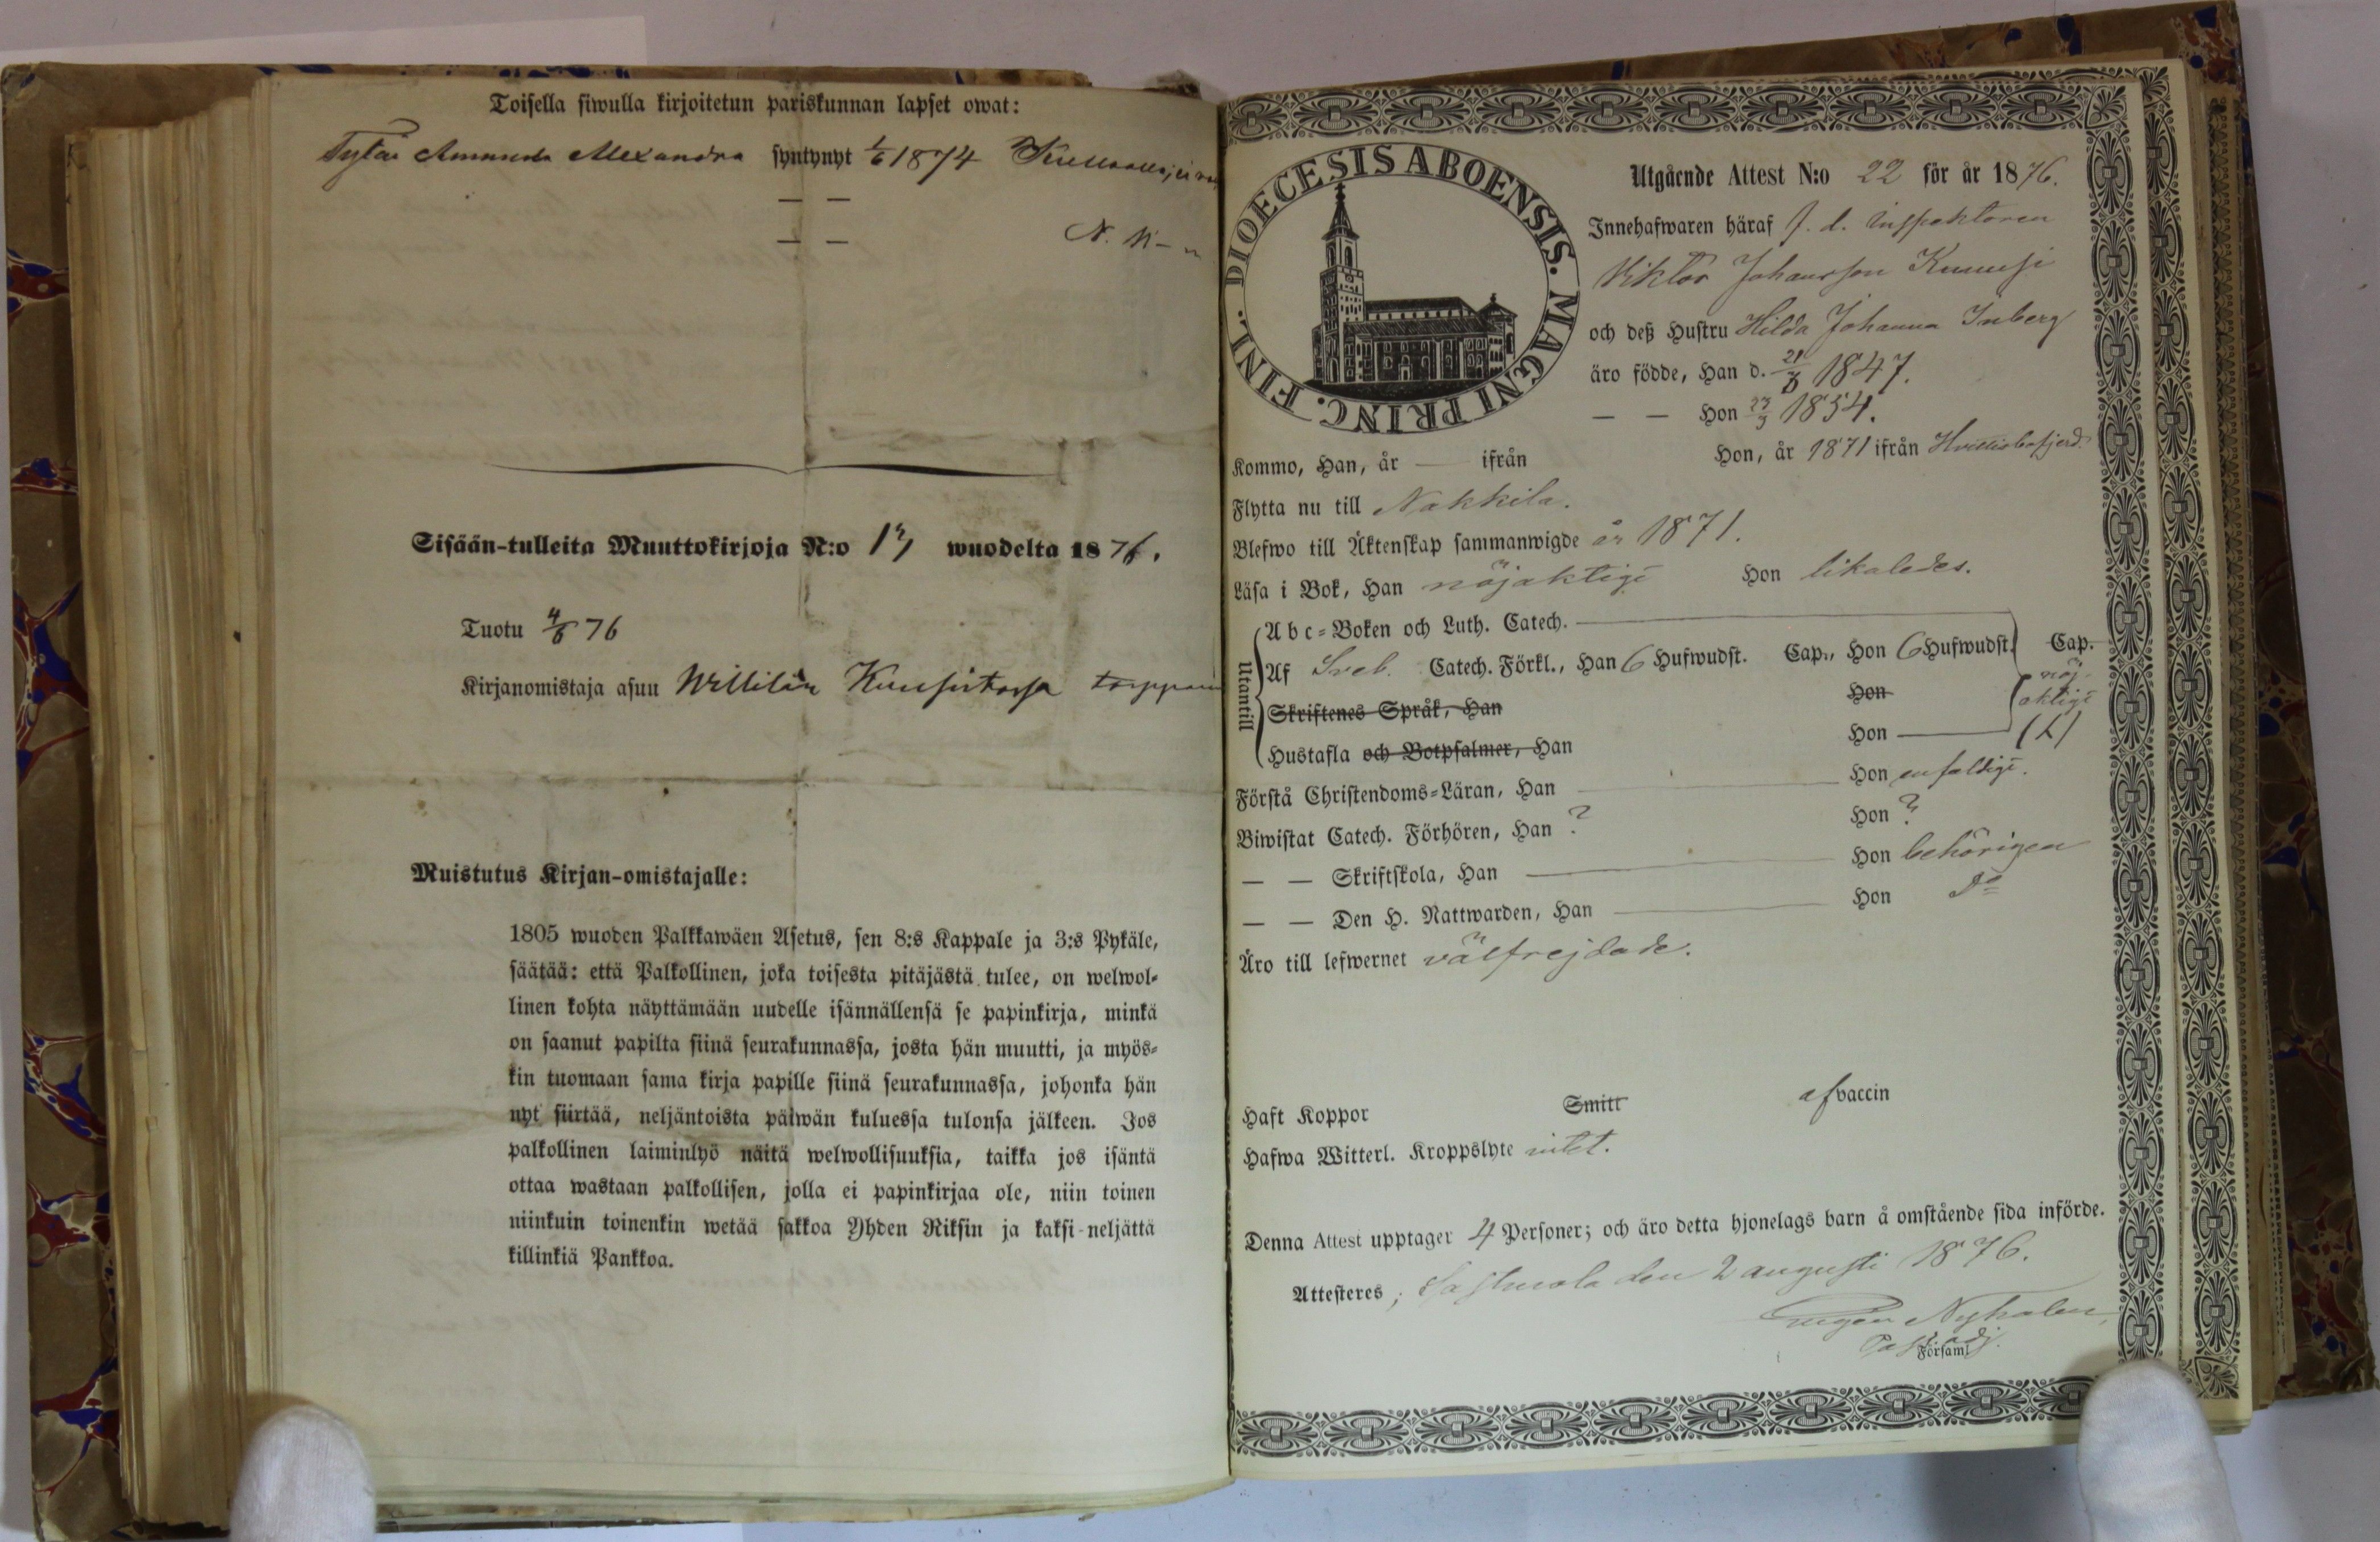 Toisella siwulla kirjoitetun pariskunnan lapset owat:
Tytär Amanda Alexandra syntynyt 1/6 1874
— —
— —
N. N-n
Sisään-tulleita Muuttokirjoja N:o 17 wuodelta 1876.
Tuotu 4/8 76
Kirjanomistaja asuu Willilän torppari
Muistutus Kirjan-omistajalle:
1805 wuoden Palkkawäen Asetus, sen 8:s Kappale ja 3:s Pykäle,
säätää: että Palkollinen, joka toisesta pitäjästä tulee, on welwol-
linen kohta näyttämään uudelle isännällensä se papinkirja, minkä
on saanut papilta siinä seurakunnassa, josta hän muutti, ja myös-
kin tuomaan sama kirja papille siinä seurakunnassa, johonka hän
nyt siirtää, neljäntoista päiwän kuluessa tulonsa jälkeen. Jos
palkollinen laiminlyö näitä welwollisuuksia, taikka jos isäntä
ottaa wastaan palkollisen, jolla ei papinkirjaa ole, niin toinen
niinkuin toinenkin wetää sakkoa Yhden Riksin ja kaksi neljättä
killinkiä Pankkoa.
DIOECESIS ABOENSIS. MAGNI PRINC. FINL.
Utgående Attest N:o 22 för år 1876.
Innehafwaren häraf f. d. inspektoren
Viktor Johansson
och deß Hustru Hilda Johanna Inberg
äro födde, Han d. 21/8 1847.
— — Hon 23/3 1854.
Kommo, Han, år — ifrån Hon, år 1871 ifrån Hvittisbofjerd.
Flytta nu till Nakkila.
Blefwo till Äktenskap sammanwigde år 1871.
Läsa i Bok, Han nöjaktigt Hon likaledes.
Utantill
Abc-Boken och Luth. Catech.
Af Sveb. Catech. Förkl., Han 6 Hufwudst. Cap., Hon 6 Hufwudst. Cap.
Skriftenes Språk, Han Hon nöjaktigt
Hustafla och Botpsalmer, Han Hon
Förstå Christendoms-Läran, Han Hon enfaldigt.
Biwistat Catech. Förhören, Han ? Hon ?
— — Skriftskola, Han Hon behörigen
— — Den H. Nattwarden, Han Hon do
Äro till lefwernet välfrejdade.
Haft Koppor Smitt af vaccin
Hafwa Witterl. Kroppslyte intet.
Denna Attest upptager 4 Personer; och äro detta hjonelags barn å omstående sida införde.
Attesteres; Sastmola den 2 augusti 1876.
Past. adj.
Församl